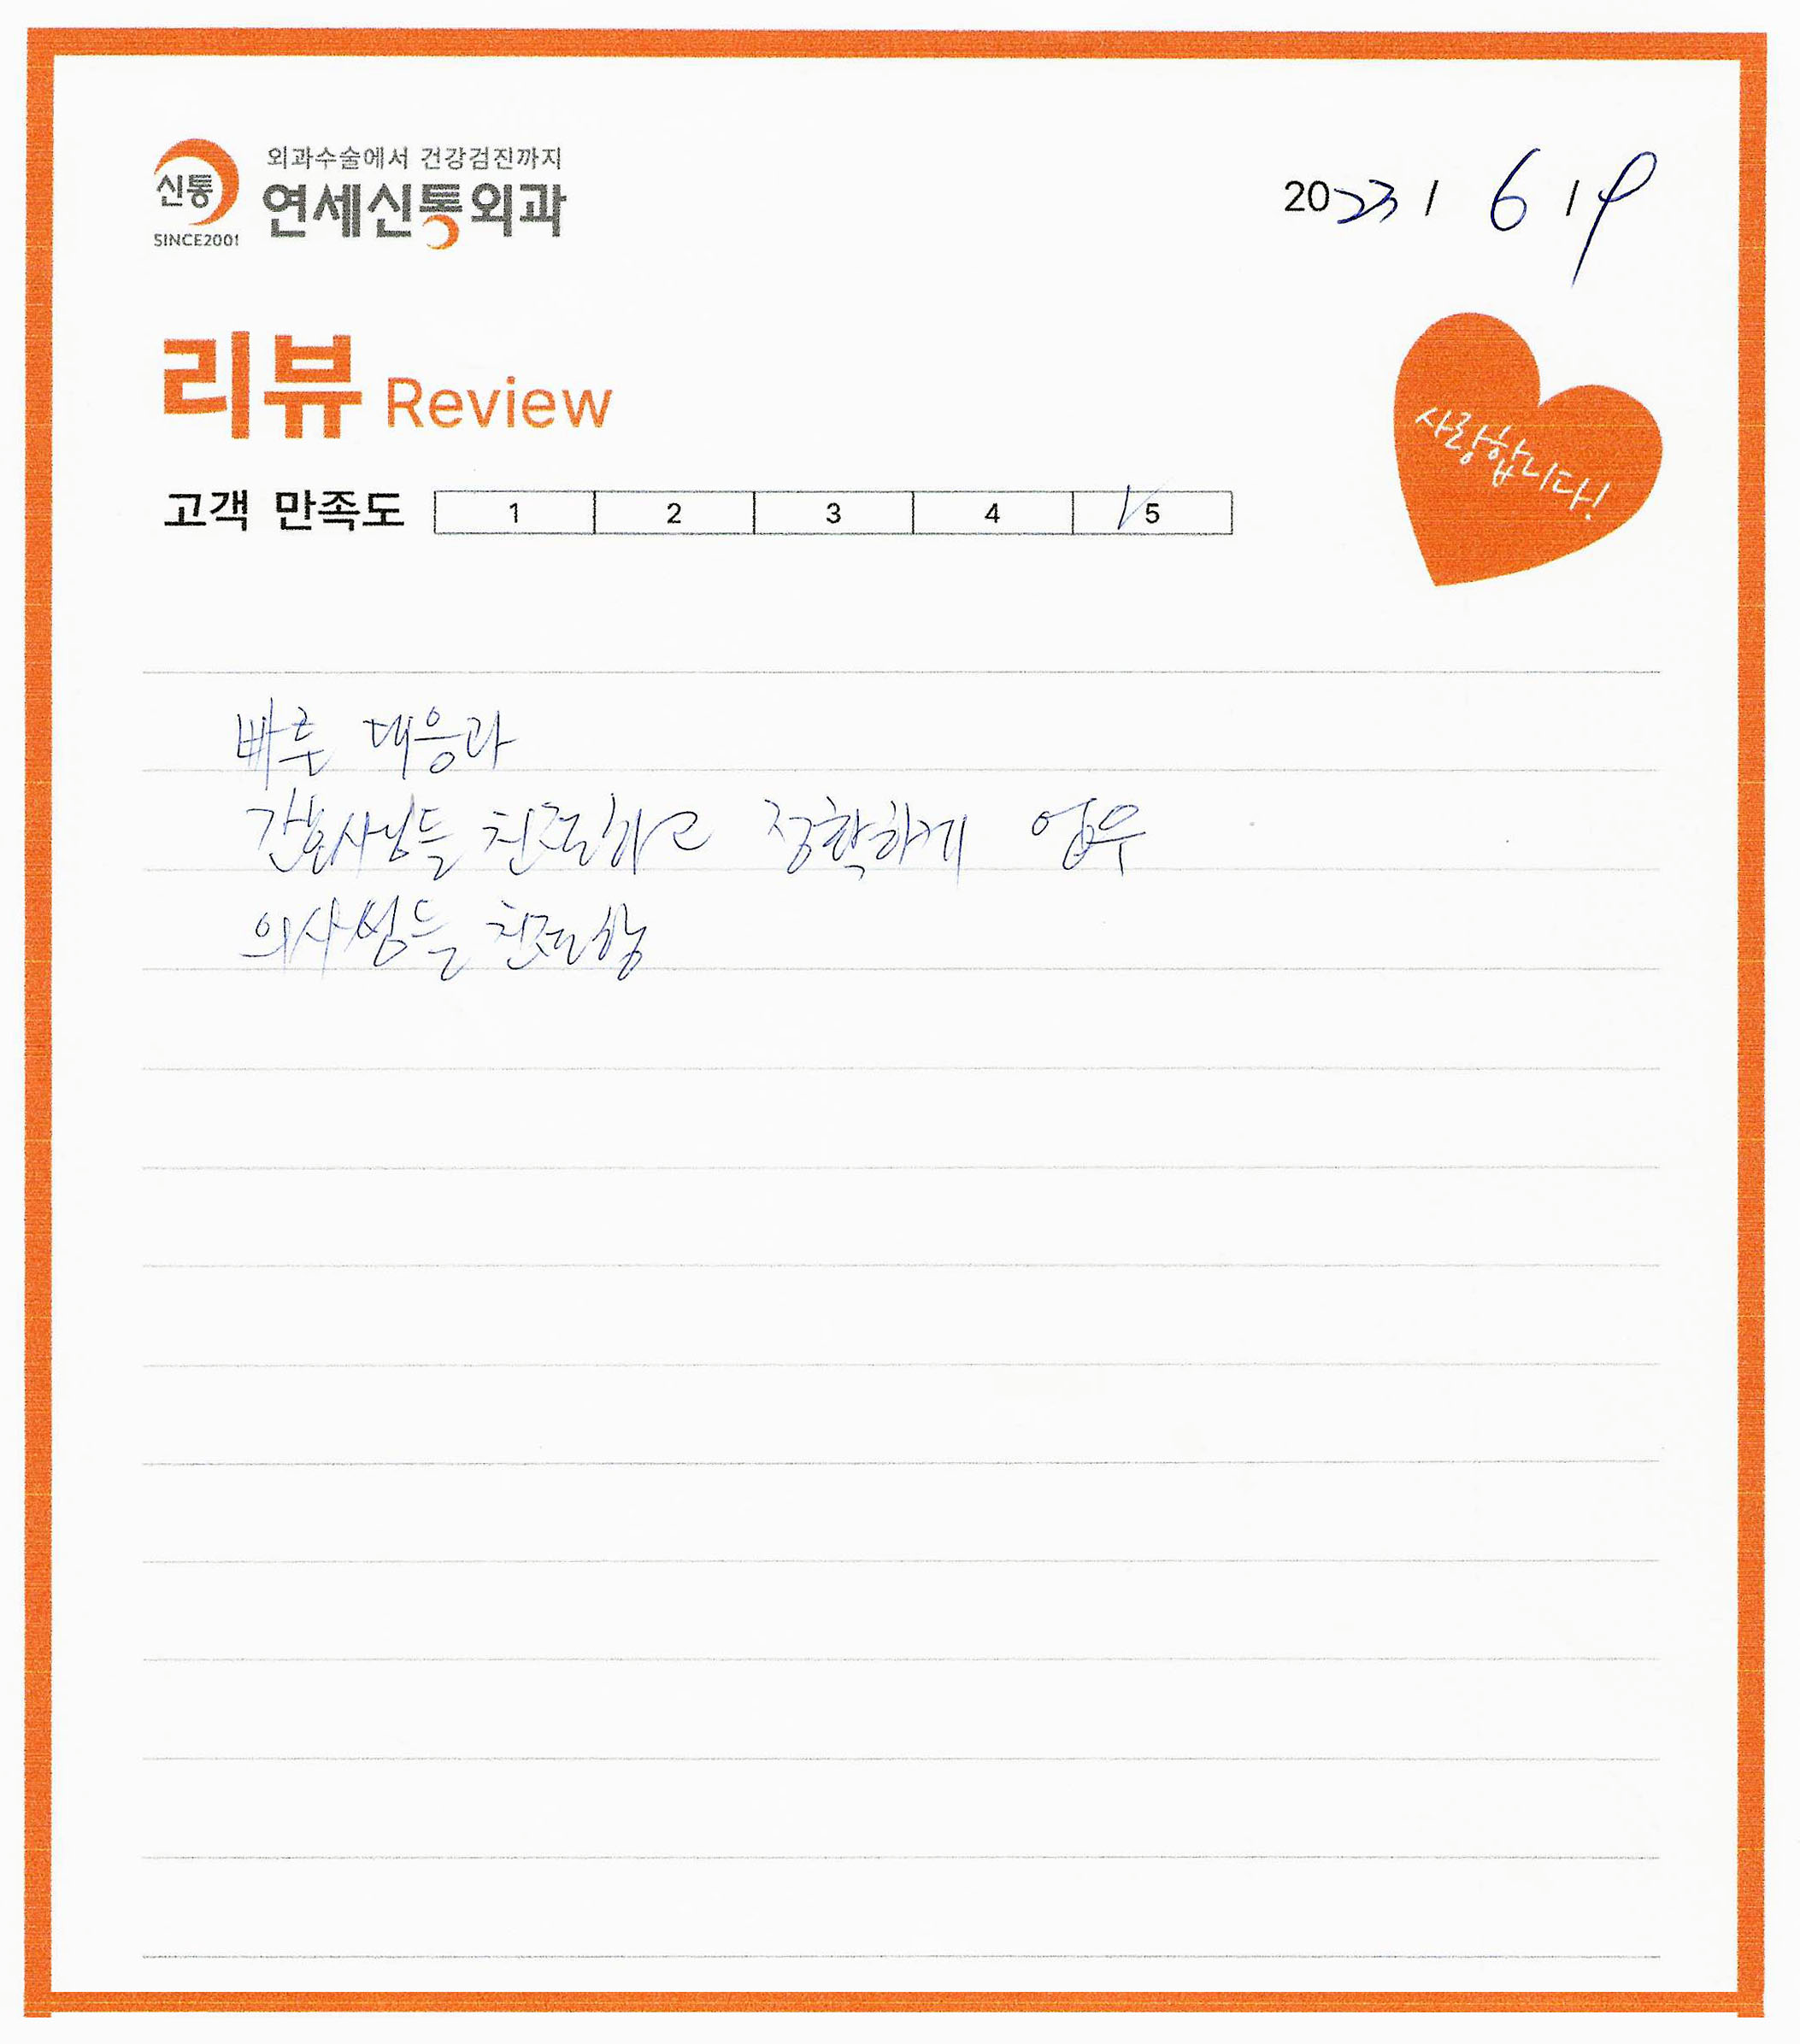 신통
SINCE2001
외과수술에서 건강검진까지
연세신통외과
2023 / 6 / 9
리뷰 Review
사랑합니다!
고객 만족도 1 2 3 4 5
빠른 대응과
간호사님들 친절하고 정확하게 업무
의사쌤들 친절함